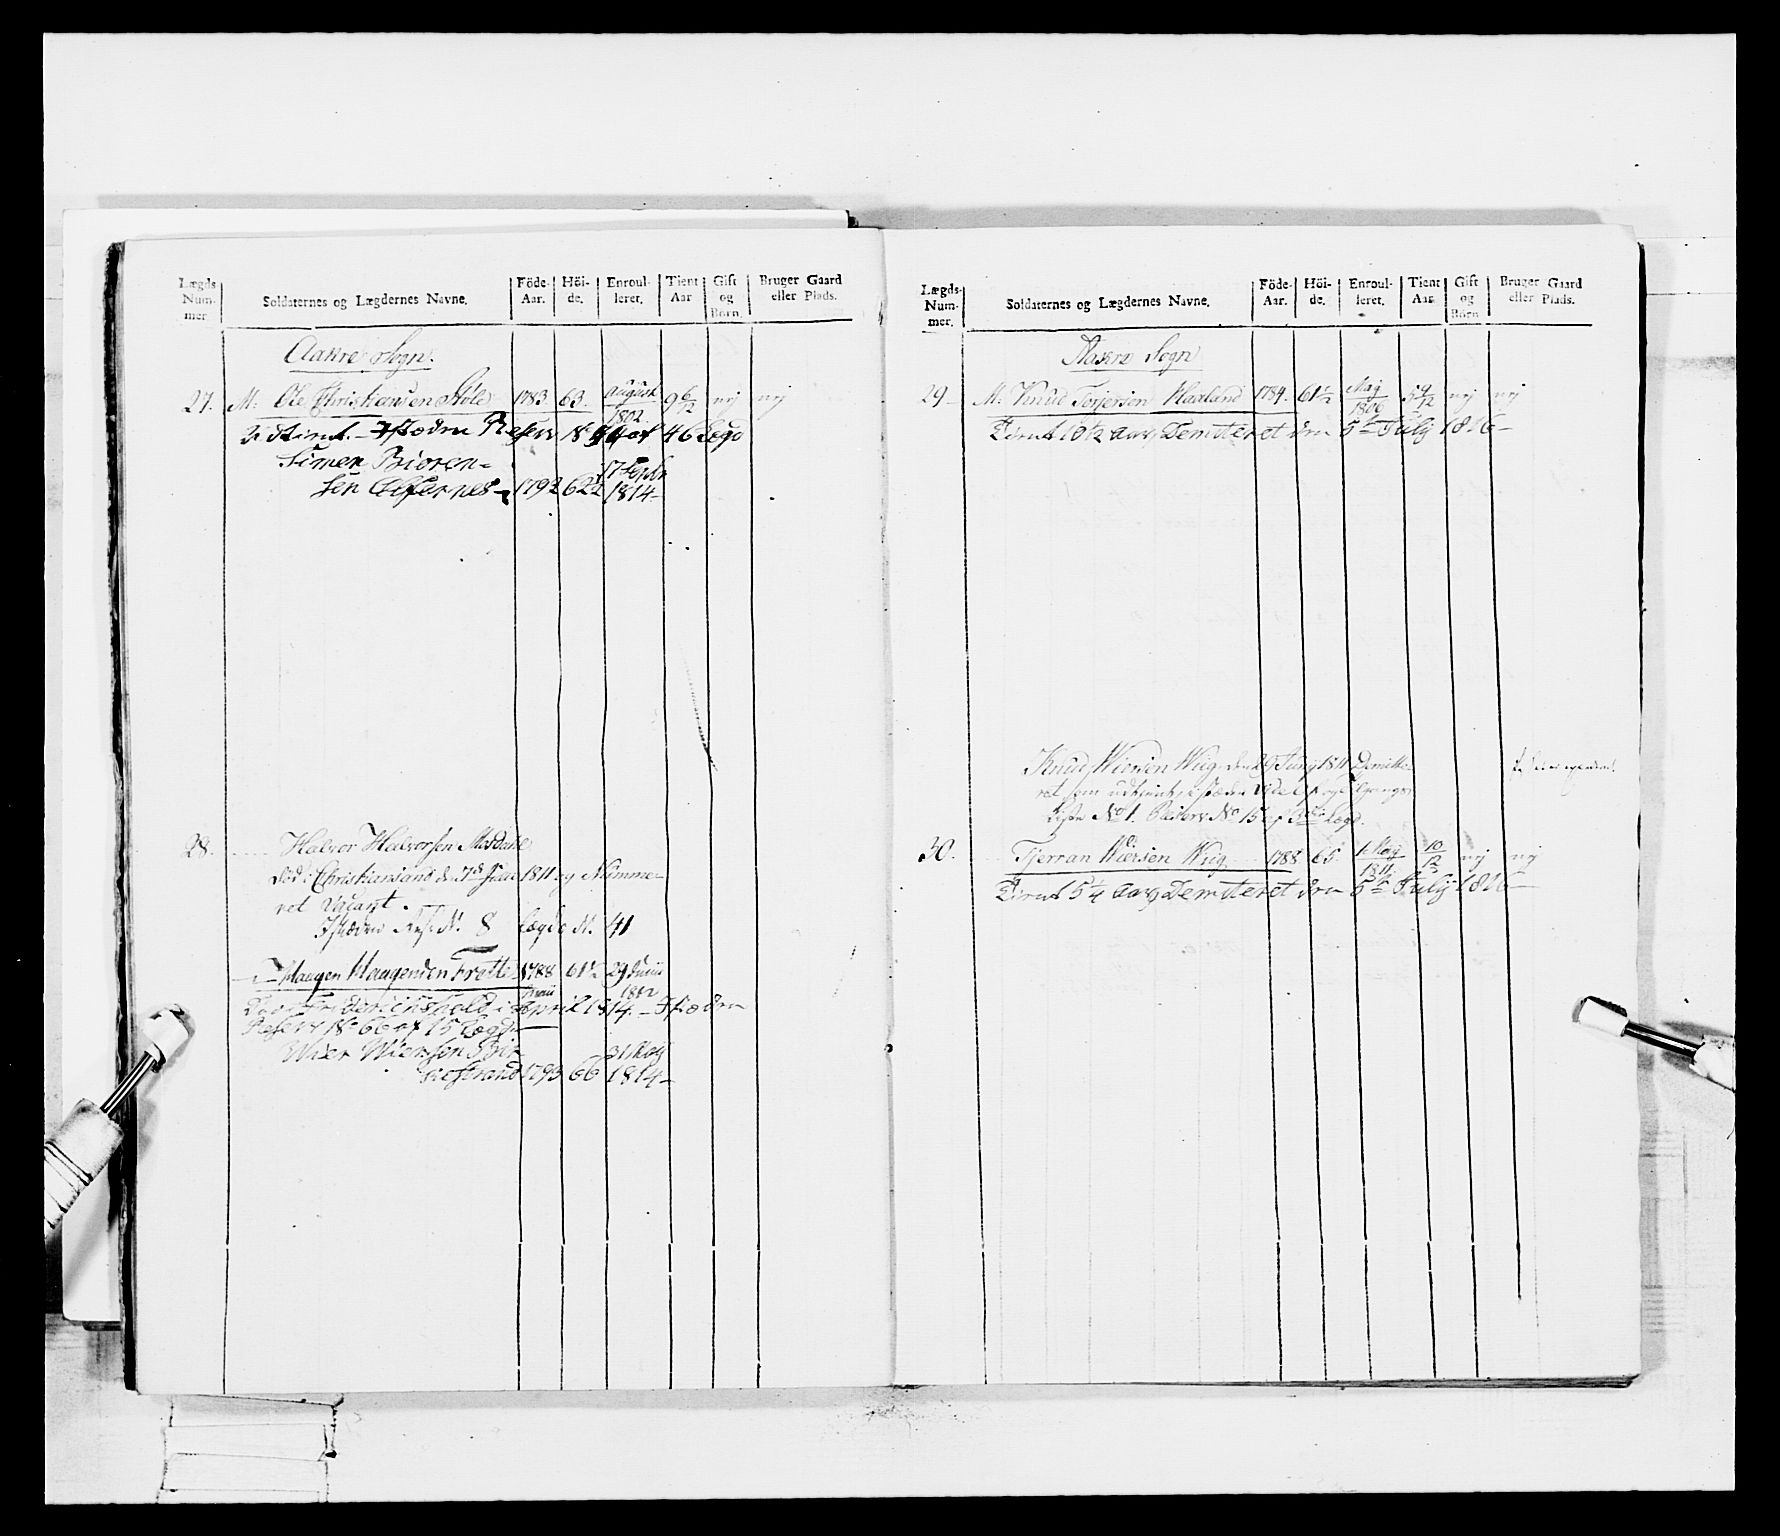 Lægds Num- mer. Soldaternes og Lægdernes Navne. Föde- Aar. Höi- de. Enroul- leret. Tient Aar Gift og Börn. Bruger Gaard eller Plads.
Aakre Sogn.
27. M: Ole Christensen 1783 63. August 1802 9 6/12 nej nej
Udtient. Istæden Reserv af 46 Lægd
Simen Bioren-
sen 1792 62½ 17 Septbr 1814
28. Halvor Halvorsen Mosdahl
död i Christiansand d 7de 1811 og Numme-
ret Vacant.
Istæden Res: N. 8 Lægd N. 41
Haagen Haagensen 1788 61½ 29 Junii 1812
Död Friderichshald i April 1814. Istæden
Reserv No 66 af 15 Lægd
Wier Wiersen Bir-
kestrand 1793 66 31 May 1814
Lægds- Num- mer. Soldaternes og Lægdernes Navne. Föde- Aar. Höi- de. Enroul- leret. Tient Aar. Gift og Börn Bruger Gaard eller Plads.
Aakre Sogn
29 M: Knud Torjersen Haaland 1784. 61½ May 1806 5 9/12 nej nej
Tient 10 1/12 Aar, Demiteret den 5te July 1816
Knud Wiersen Wiig den 29 Juny 1811 Demitte-
ret som udtient, istæden
Liste No 1. Reserv No 15 af 3die Lægd.
30. Tjerran Wiersen Wiig 1788 65. 1 May 1811 10/12 nej nej
Tient 5¼ Aar, Demiteret den 5te July 1816